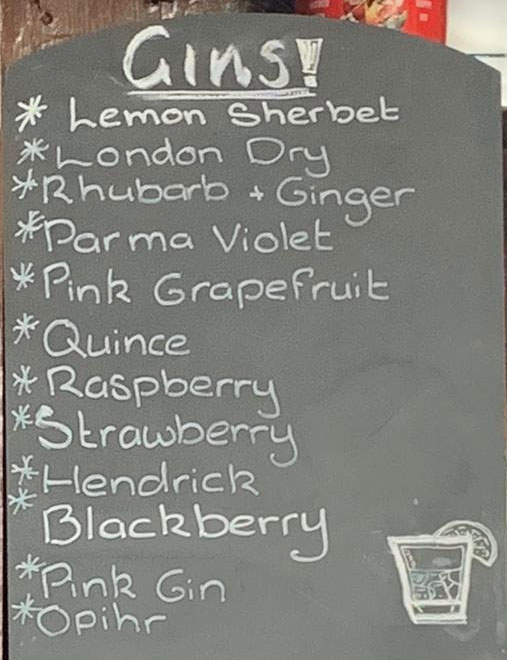 Gins!
* Lemon Sherbet
* London Dry
* Rhubarb + Ginger
* Parma Violet
* Pink Grapefruit
* Quince
* Raspberry
* Strawberry
* Hendrick
* Blackberry
* Pink Gin
* Opihr